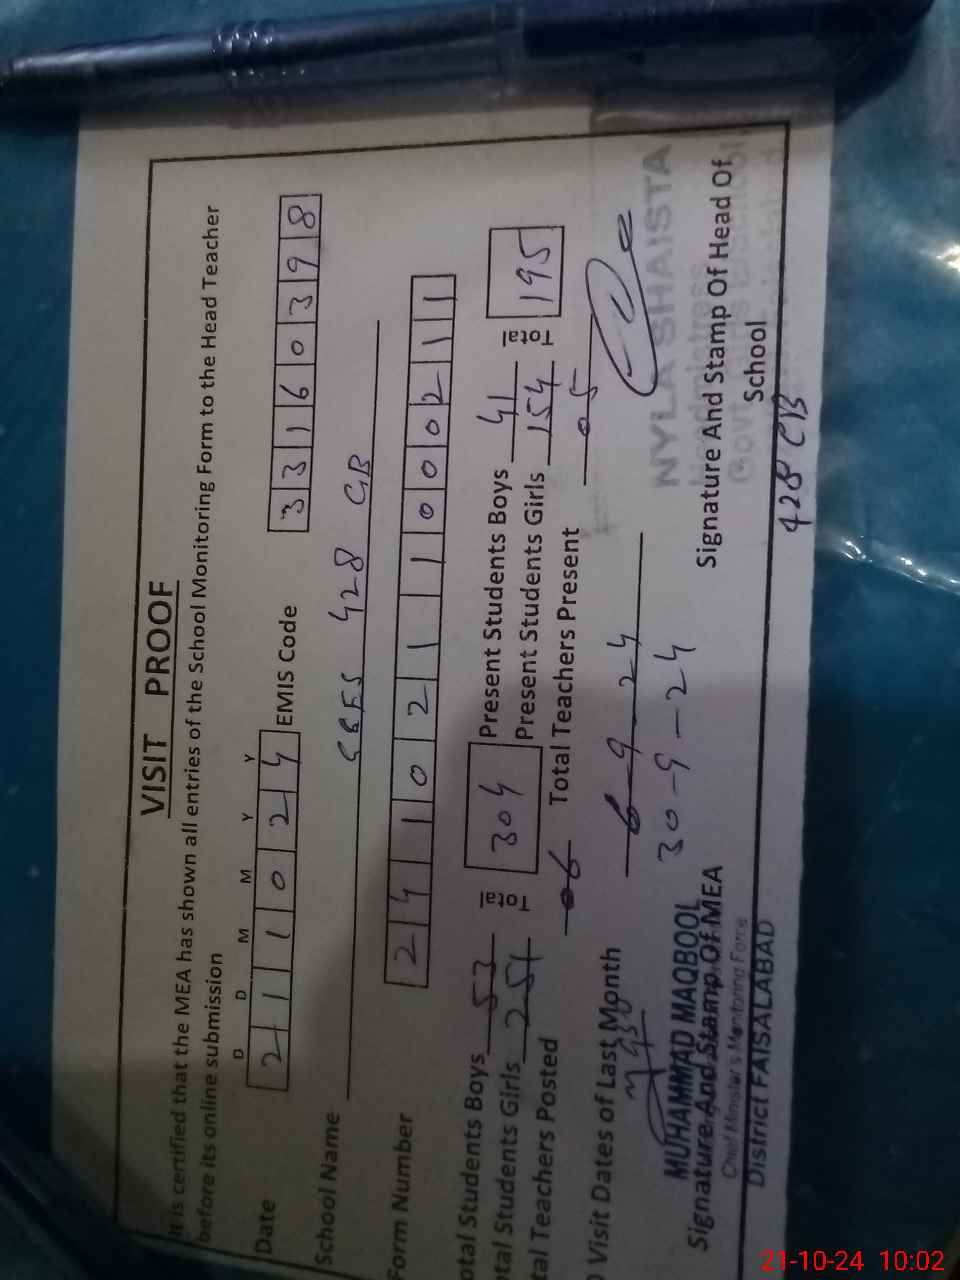 VISIT PROOF
It is certified that the MEA has shown all entries of the School Monitoring Form to the Head Teacher
before its online submission
D D M M Y Y
Date 2 1 1 0 2 4 EMIS Code 3 3 1 6 0 3 9 8
School Name GGES 428 GB
Form Number 2 4 1 1 0 2 1 1 1 0 0 0 2 1 1
otal Students Boys 53 Total 304 Present Students Boys 41 Total 195
tal Students Girls 251 Present Students Girls 154
tal Teachers Posted 06 Total Teachers Present 05
Visit Dates of Last Month 6-9-24
30-9-24
MUHAMMAD MAQBOOL NYLA SHAISTA
Signature And Stamp Of MEA Signature And Stamp Of Head Of
School
Chief Minister's Monitoring Force Headmistress
District FAISALABAD
428 GB
21-10-24 10:02